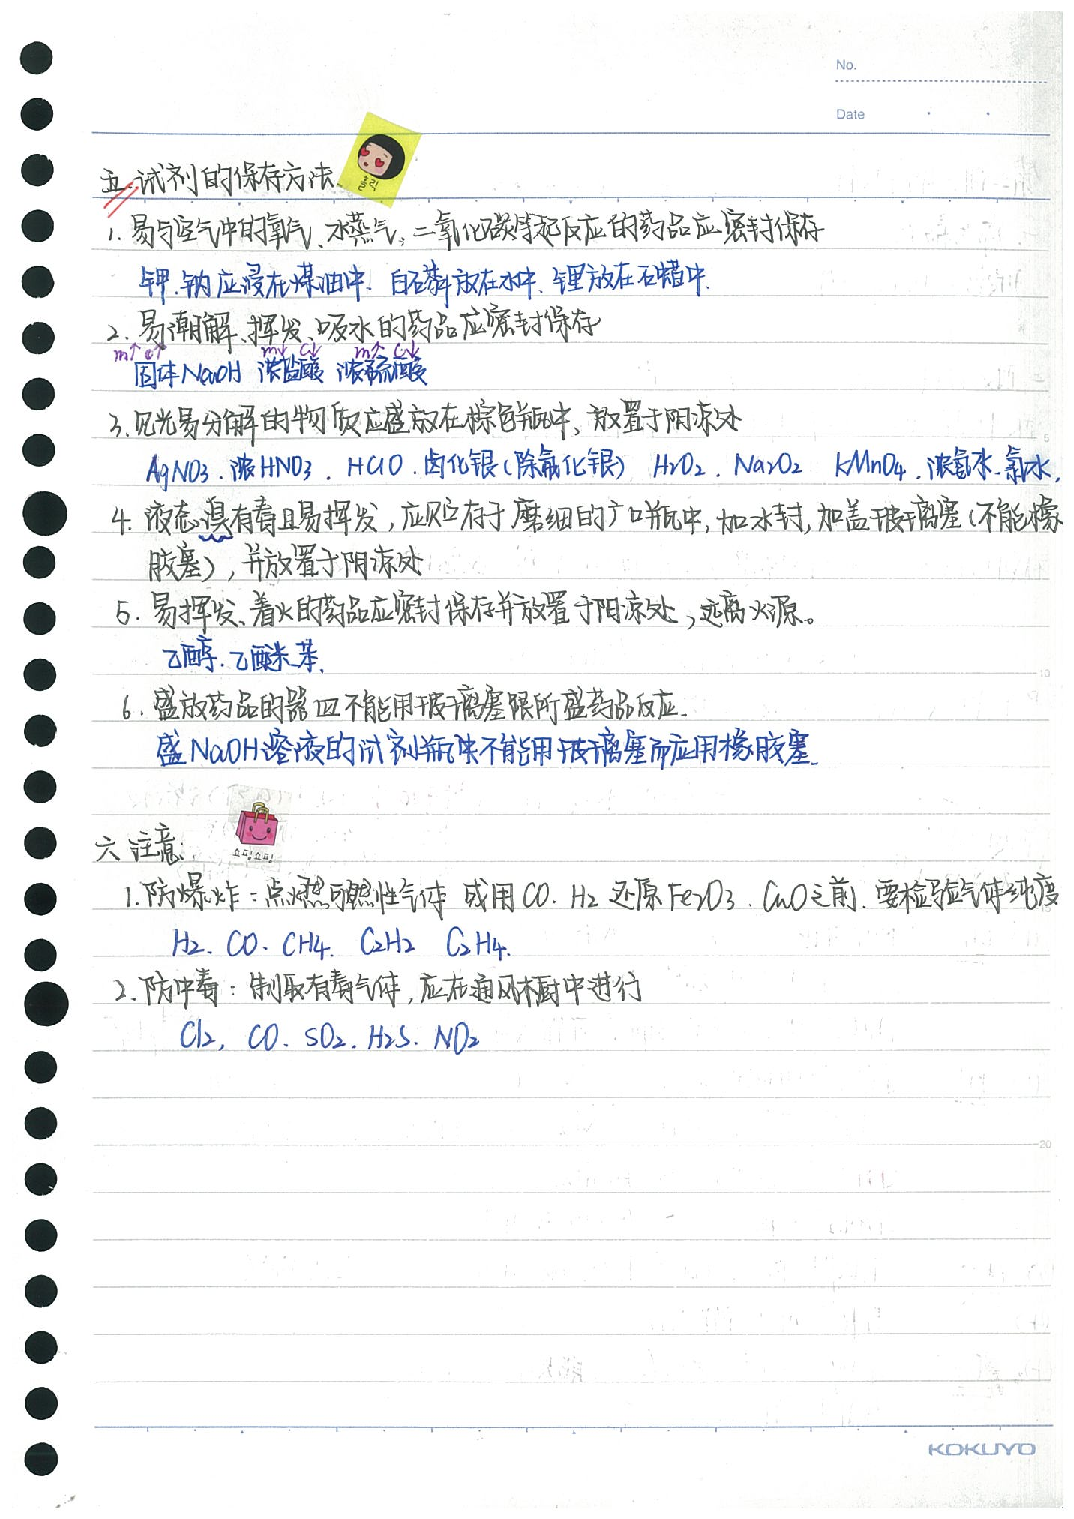 No.
Date
五、试剂的保存方法.
1. 易与空气中的氧气、水蒸气、二氧化碳等起反应的药品应密封保存
钾、钠应浸在煤油中、白磷放在水中、锂放在石蜡中.
2. 易潮解、挥发、吸水的药品应密封保存
m↑ c↑ m↓ c↓ m↑ c↓
固体NaOH 浓盐酸 浓硫酸
3. 见光易分解的物质应盛放在棕色瓶中, 放置于阴凉处
AgNO3 . 浓HNO3 . HClO . 卤化银(除氟化银) H2O2 . Na2O2 KMnO4 . 浓氨水、氯水.
4. 液态溴有毒且易挥发, 应贮存于磨细的广口瓶中, 加水封, 加盖玻璃塞(不能橡
胶塞), 并放置于阴凉处
5. 易挥发、着火的药品应密封保存并放置于阴凉处, 远离火源。
乙醇、乙醚、苯、
6. 盛放药品的器皿不能用玻璃塞跟所盛药品反应.
盛NaOH溶液的试剂瓶不能用玻璃塞而应用橡胶塞.
쇼핑쇼핑
六、注意:
1. 防爆炸: 点燃可燃性气体 或用CO、H2还原Fe2O3、CuO之前. 要检验气体纯度
H2、CO、CH4、C2H2 C2H4.
2. 防中毒: 制取有毒气体, 应在通风橱中进行
Cl2, CO、SO2、H2S、NO2
KOKUYO